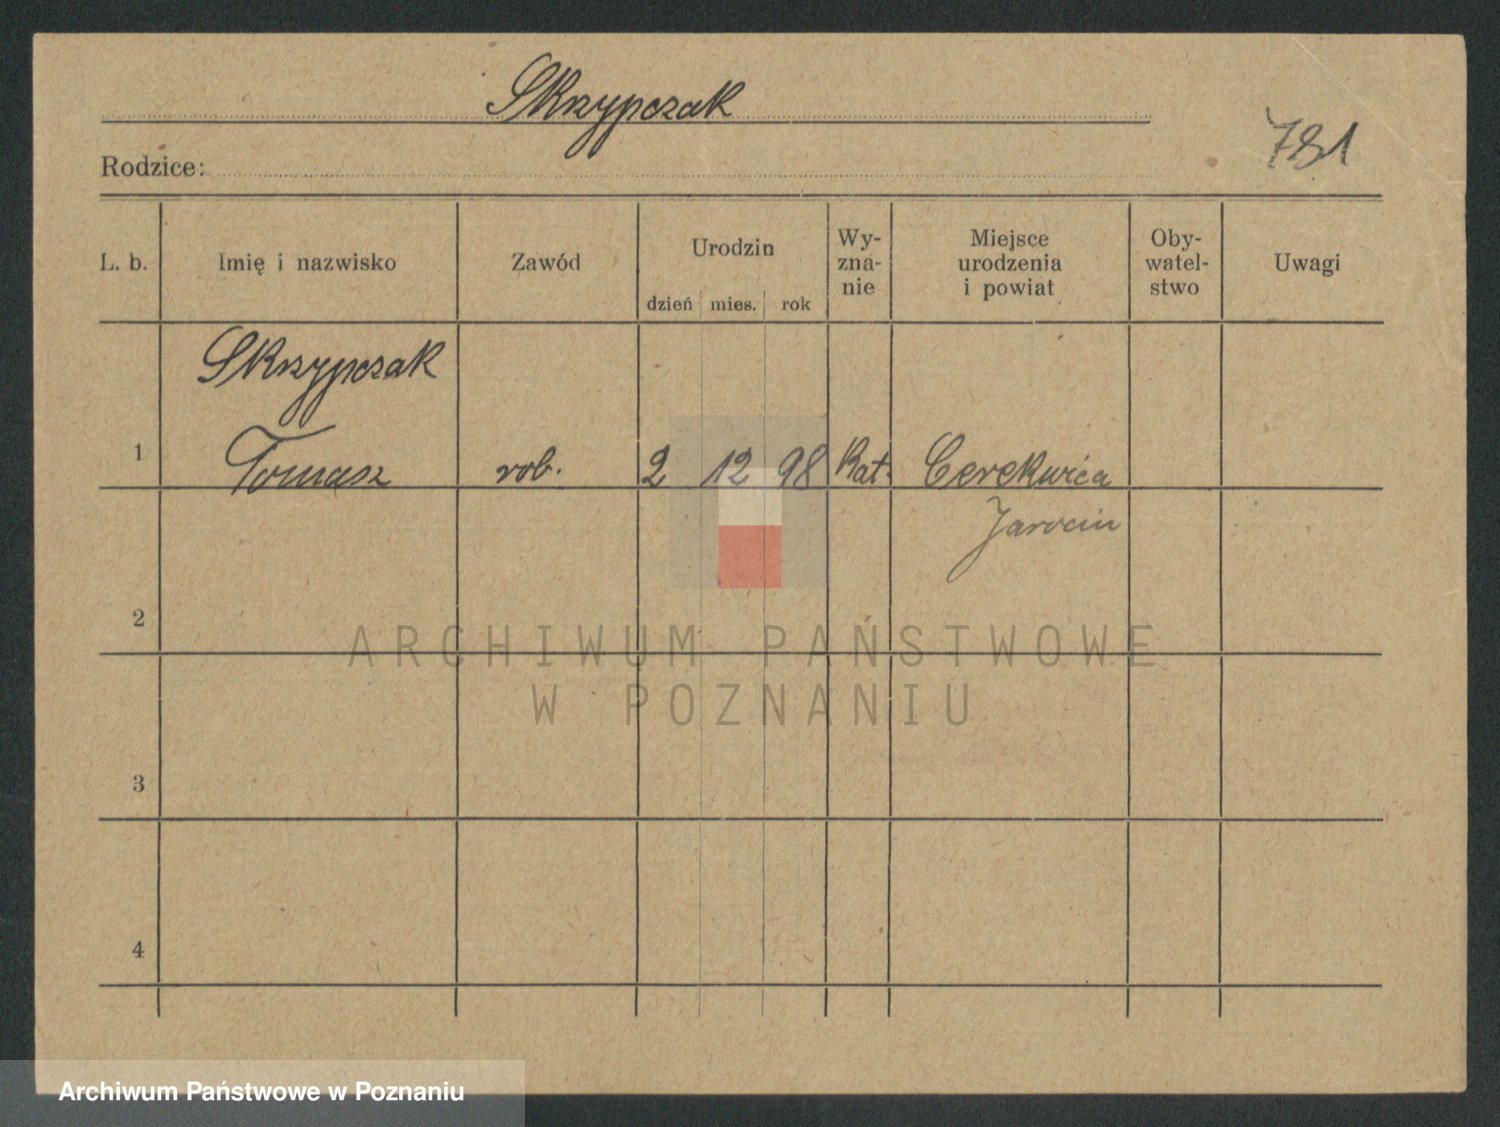 Skrzypczak
781
Rodzice:
L. b. Imię i nazwisko Zawód Urodzin dzień mies. rok Wy-zna-nie Miejsce urodzenia i powiat Oby-watel-stwo Uwagi
Skrzypczak
1 Tomasz rob. 2 12 98 Kat. Cerekwica
Jarocin
2
ARCHIWUM PAŃSTWOWE
W POZNANIU
3
4
Archiwum Państwowe w Poznaniu